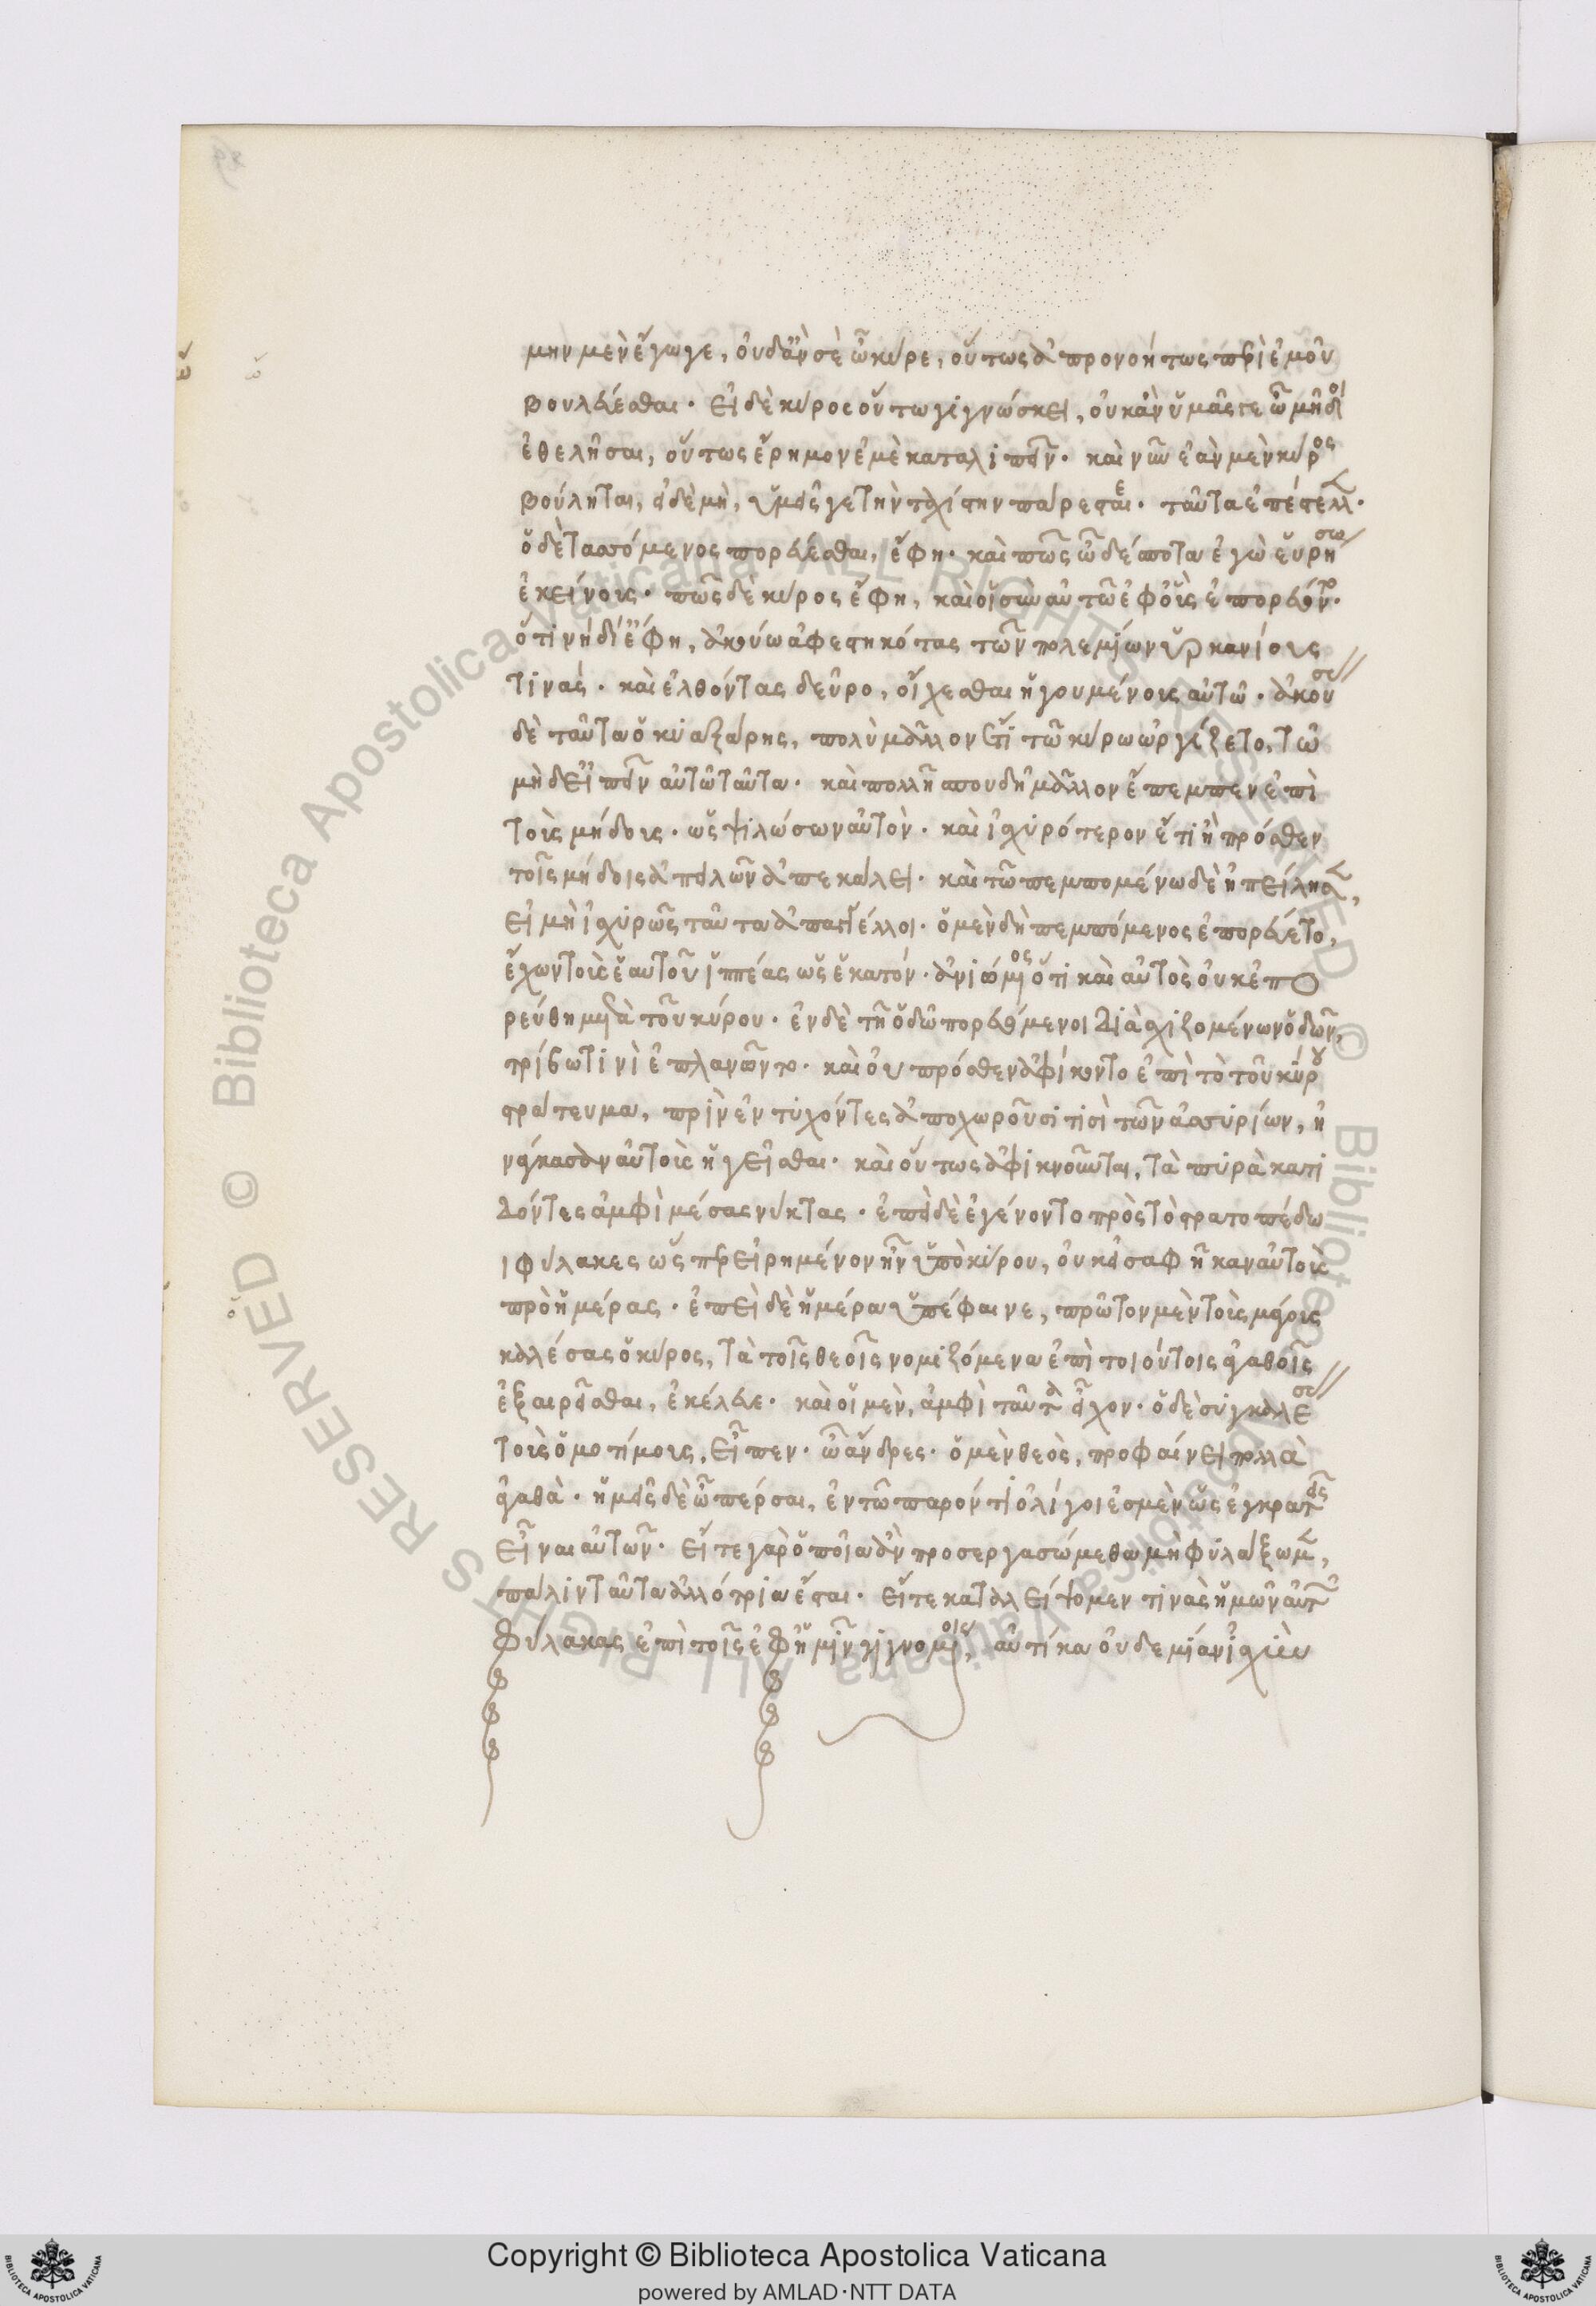 μην μὲν ἔγωγε, οὐδ' ἂν σὲ ὦ κῦρε, οὕτως ἀπρονοήτως περὶ ἐμοῦ
βουλεύεσθαι. εἰ δὲ κῦρος οὕτω γιγνώσκει, οὐκ ἂν ὑμᾶς γε ὦ μῆδοι
ἐθελῆσαι, οὕτως ἔρημον ἐμὲ καταλιπεῖν. καὶ νῦν ἐὰν μὲν κῦρος
βούληται, εἰ δὲ μὴ, ὑμεῖς γε τὴν ταχίστην πάρεστε. ταῦτα ἐπέστειλεν.
ὁ δὲ τασσόμενος πορεύεσθαι, ἔφη. καὶ πῶς ὦ δέσποτα ἐγὼ εὑρήσω
ἐκείνους. πῶς δὲ κῦρος ἔφη, καὶ οἱ σὺν αὐτῶ ἐφ' οὓς ἐπορεύοντο.
ὅτι νὴ δί' ἔφη, ἀκούω ἀφεστηκότας τῶν πολεμίων ὑρκανίους
τινάς. καὶ ἐλθόντας δεῦρο, οἴχεσθαι ἡγουμένους αὐτῶ. ἀκούσας
δὲ ταῦτα ὁ κυαξάρης, πολὺ μᾶλλον ἔτι τῶ κύρω ὠργίζετο, τῶ
μὴ δ' εἰπεῖν αὐτῶ ταῦτα. καὶ πολλῆ σπουδῆ μᾶλλον ἔπεμπεν ἐπὶ
τοὺς μήδους. ὡς ψιλώσων αὐτόν. καὶ ἰσχυρότερον ἔτι ἢ πρόσθεν
τοῖς μήδοις ἀπειλῶν ἀπεκάλει. καὶ τῶ πεμπομένω δὲ ἠπείλησεν,
εἰ μὴ ἰσχυρῶς ταῦτα ἀπαγγέλλοι. ὁ μὲν δὴ πεμπόμενος ἐπορεύετο,
ἔχων τοὺς ἑαυτοῦ ἱππέας ὡς ἑκατόν. ἀνιώμενος ὅτι καὶ αὐτὸς οὐκ ἐπο
ρεύθη μετὰ τοῦ κύρου. ἐν δὲ τῆ ὁδῶ πορευόμενοι διασχιζομένων ὁδῶν,
τρίβω τινὶ ἐπλανῶντο. καὶ οὐ πρόσθεν ἀφίκοντο ἐπὶ τὸ τοῦ κύρου
στράτευμα, πρὶν ἐντυχόντες ἀποχωροῦσί τισι τῶν ἀσσυρίων, ἠ
νάγκασαν αὐτοὺς ἡγεῖσθαι. καὶ οὕτως ἀφικνοῦνται, τὰ πυρὰ κατι
δόντες ἀμφὶ μέσας νύκτας. ἐπεὶ δὲ ἐγένοντο πρὸς τὸ στρατοπέδω
ι φύλακες ὡς προειρημένον ἦν ὑπὸ κύρου, οὐκ εἰσαφῆκαν αὐτοὺς
πρὸ ἡμέρας. ἐπεὶ δὲ ἡμέρα ὑπέφαινε, πρῶτον μὲν τοὺς μάγους
καλέσας ὁ κῦρος, τὰ τοῖς θεοῖς νομιζόμενα ἐπὶ τοιούτοις ἀγαθοῖς
ἐξαιρεῖσθαι, ἐκέλευε. καὶ οἱ μὲν, ἀμφὶ ταῦτα εἶχον. ὁ δὲ συγκαλέσας
τοὺς ὁμοτίμους, εἶπεν. ὦ ἄνδρες. ὁ μὲν θεὸς, προφαίνει πολλὰ
ἀγαθά. ἡμεῖς δὲ ὦ πέρσαι, ἐν τῶ παρόντι ὀλίγοι ἐσμὲν ὡς ἐγκρατεῖς
εἶναι αὐτῶν. εἴτε γὰρ ὁποῖα ἂν προσεργασώμεθα μὴ φυλάξωμεν,
πάλιν ταῦτα ἀλλότρια ἔσται. εἴτε καταλείψομεν τινὰς ἡμῶν αὐτῶν
φύλακας ἐπὶ τοῖς ἐφ' ἡμῖν γιγνομένοις, αὐτίκα οὐδεμίαν ἰσχὺν
Copyright © Biblioteca Apostolica Vaticana
powered by AMLAD·NTT DATA